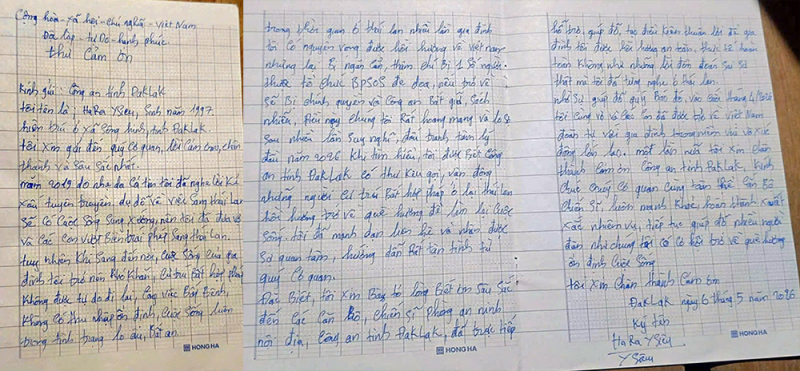 Cộng hòa - xã hội - chủ nghĩa - Việt Nam
Độc lập - Tự Do - hạnh phúc
Thư Cảm ơn
Kính gửi: Công an tỉnh ĐakLak
tôi tên là: HaRa YSiêu, Sinh năm 1997
hiện trú ở xã Sông hinh, tỉnh ĐakLak
tôi Xin gửi đến quý Cơ quan, lời Cảm ơn, chân
thành và Sâu sắc nhất.
năm 2019 do nhẹ dạ Cả tin tôi đã nghe lời Kẻ
xấu tuyên truyền dụ dỗ về việc Sang thái Lan
Sẽ Có Cuộc Sống Sung Sướng, nên tôi đã đưa vợ
và Các con vượt Biên trái phép Sang thái Lan.
tuy nhiên Khi Sang đến nơi, cuộc Sống của gia
đình tôi trở nên Khó Khăn, Cư trú Bất hợp pháp
Không được tự do đi lại, Công việc Bấp Bênh,
Không Có thu nhập ổn định, Cuộc Sống luôn
trong tình trạng lo âu, Bất an.
HONGHA
trong thời gian ở thái lan nhiều lần gia đình
tôi Có nguyện vọng được hồi hương về việt nam
nhưng lại Bị ngăn Cản, thậm chí Bị 1 Số người
thuộc tổ chức BPSOS đe dọa, nếu trở về
Sẽ Bị chính quyền và Công an Bắt giữ, Sách
nhiễu, điều này chúng tôi Rất hoang mang và lo sợ
Sau nhiều lần Suy nghĩ, đấu tranh tâm lý
đầu năm 2026 Khi tìm hiểu, tôi được Biết Công
an tỉnh ĐakLak có thư Kêu gọi, vận động
những người Cư trú Bất hợp pháp ở lại thái lan
hồi hương trở về quê hương để làm lại Cuộc
Sống. tôi đã mạnh dạn liên hệ và nhận được
Sự quan tâm, hướng dẫn Rất tận tình từ
quý Cơ quan.
Đặc Biệt, tôi xin Bày tỏ lòng Biết ơn Sâu Sắc
đến các Cán Bộ, chiến sĩ Phòng an ninh
nội địa, Công an tỉnh ĐakLak, đã trực tiếp
HONGHA
hỗ trợ, giúp đỡ, tạo điều kiện thuận lợi để gia
đình tôi được hồi hương an toàn, thực tế hoàn
toàn Không như những lời đồn đoán Sai Sự
thật mà tôi đã từng nghe ở thái lan.
nhờ Sự giúp đỡ quý Báu đó, vào Cuối tháng 4/2026
tôi Cùng vợ và Các Con đã được trở về Việt Nam
đoàn tụ với gia đình trong niềm vui và xúc
động lớn lao. một lần nữa tôi xin chân
thành cảm ơn Công an tỉnh ĐakLak, Kính
chúc quý cơ quan cùng toàn thể Cán Bộ
chiến Sĩ, luôn mạnh Khỏe hoàn thành xuất
xắc nhiệm vụ, tiếp tục giúp đỡ nhiều người
dân như chúng tôi có Cơ hội trở về quê hương
ổn định cuộc Sống
tôi Xin Chân thành Cảm ơn
ĐakLak ngày 6 tháng 5 năm 2026
Ký tên
HaRa YSiêu
YSiêu
HONGHA